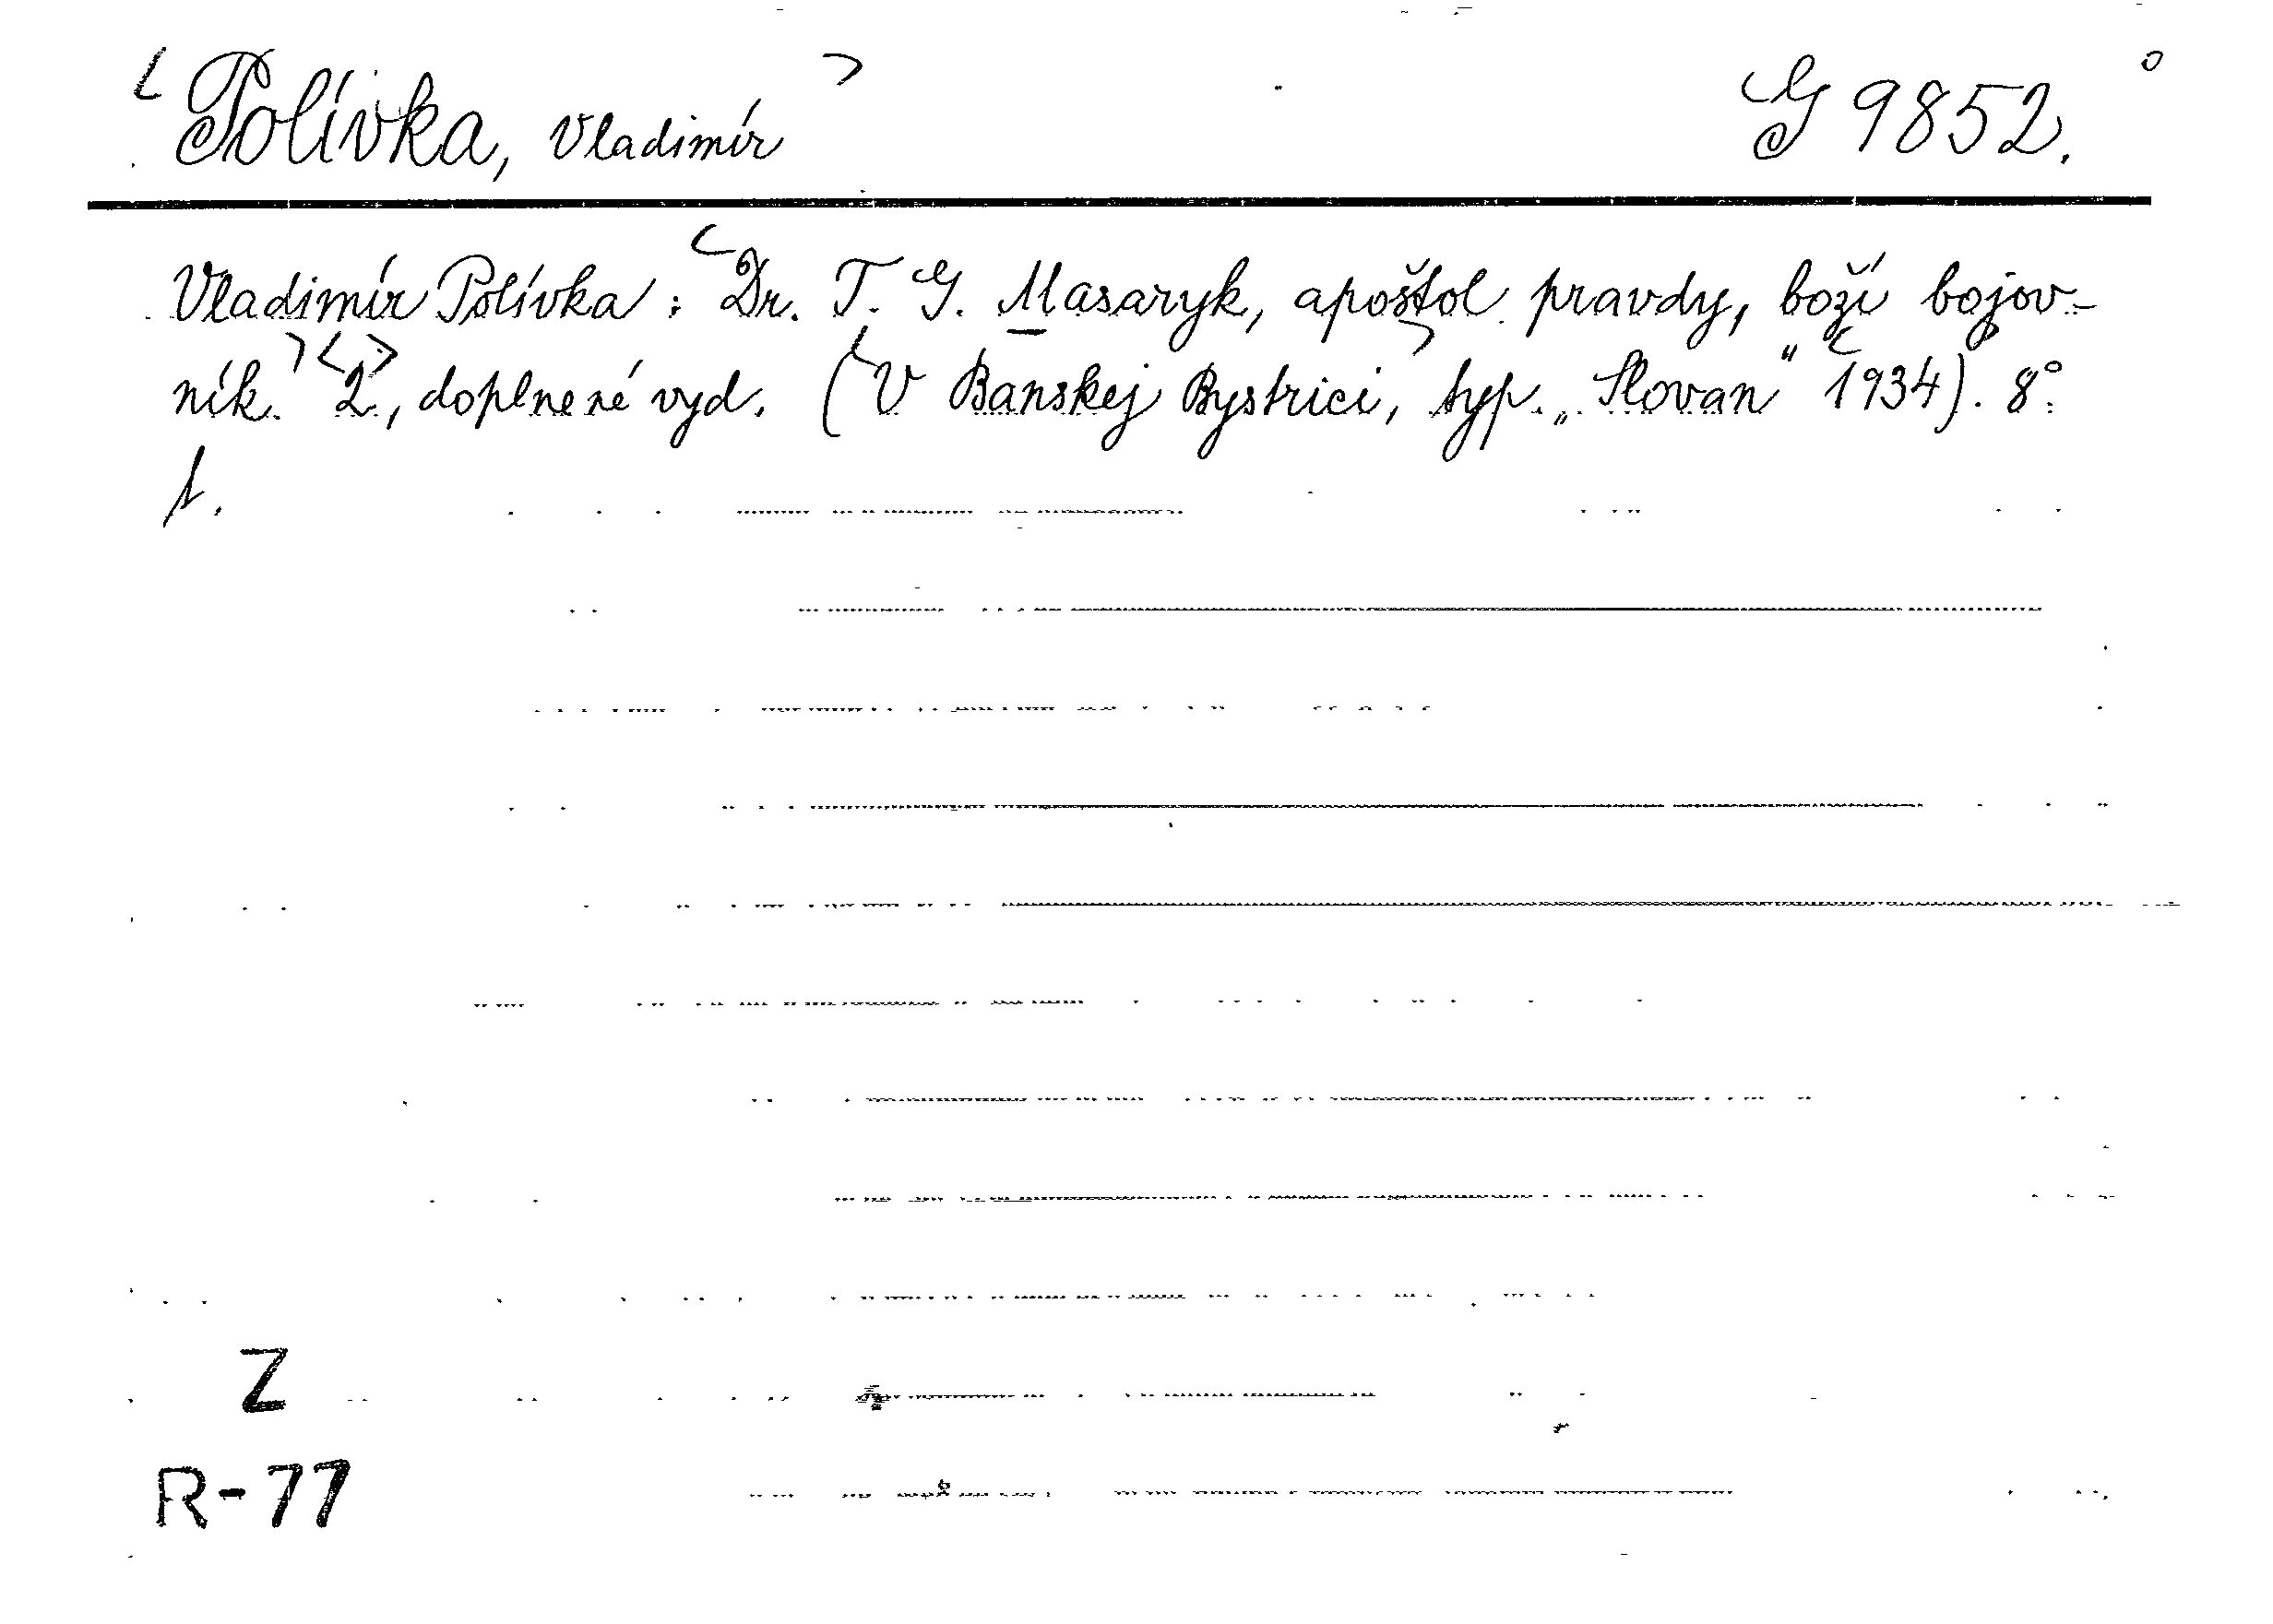 Polívka, Vladimír G 9852.
Vladimír Polívka: Dr. T. G. Masaryk, apoštol pravdy, boží bojov-
ník. 2., doplnené vyd. (V Banskej Bystrici, typ. „Slovan" 1934). 8°.
Z
R-77